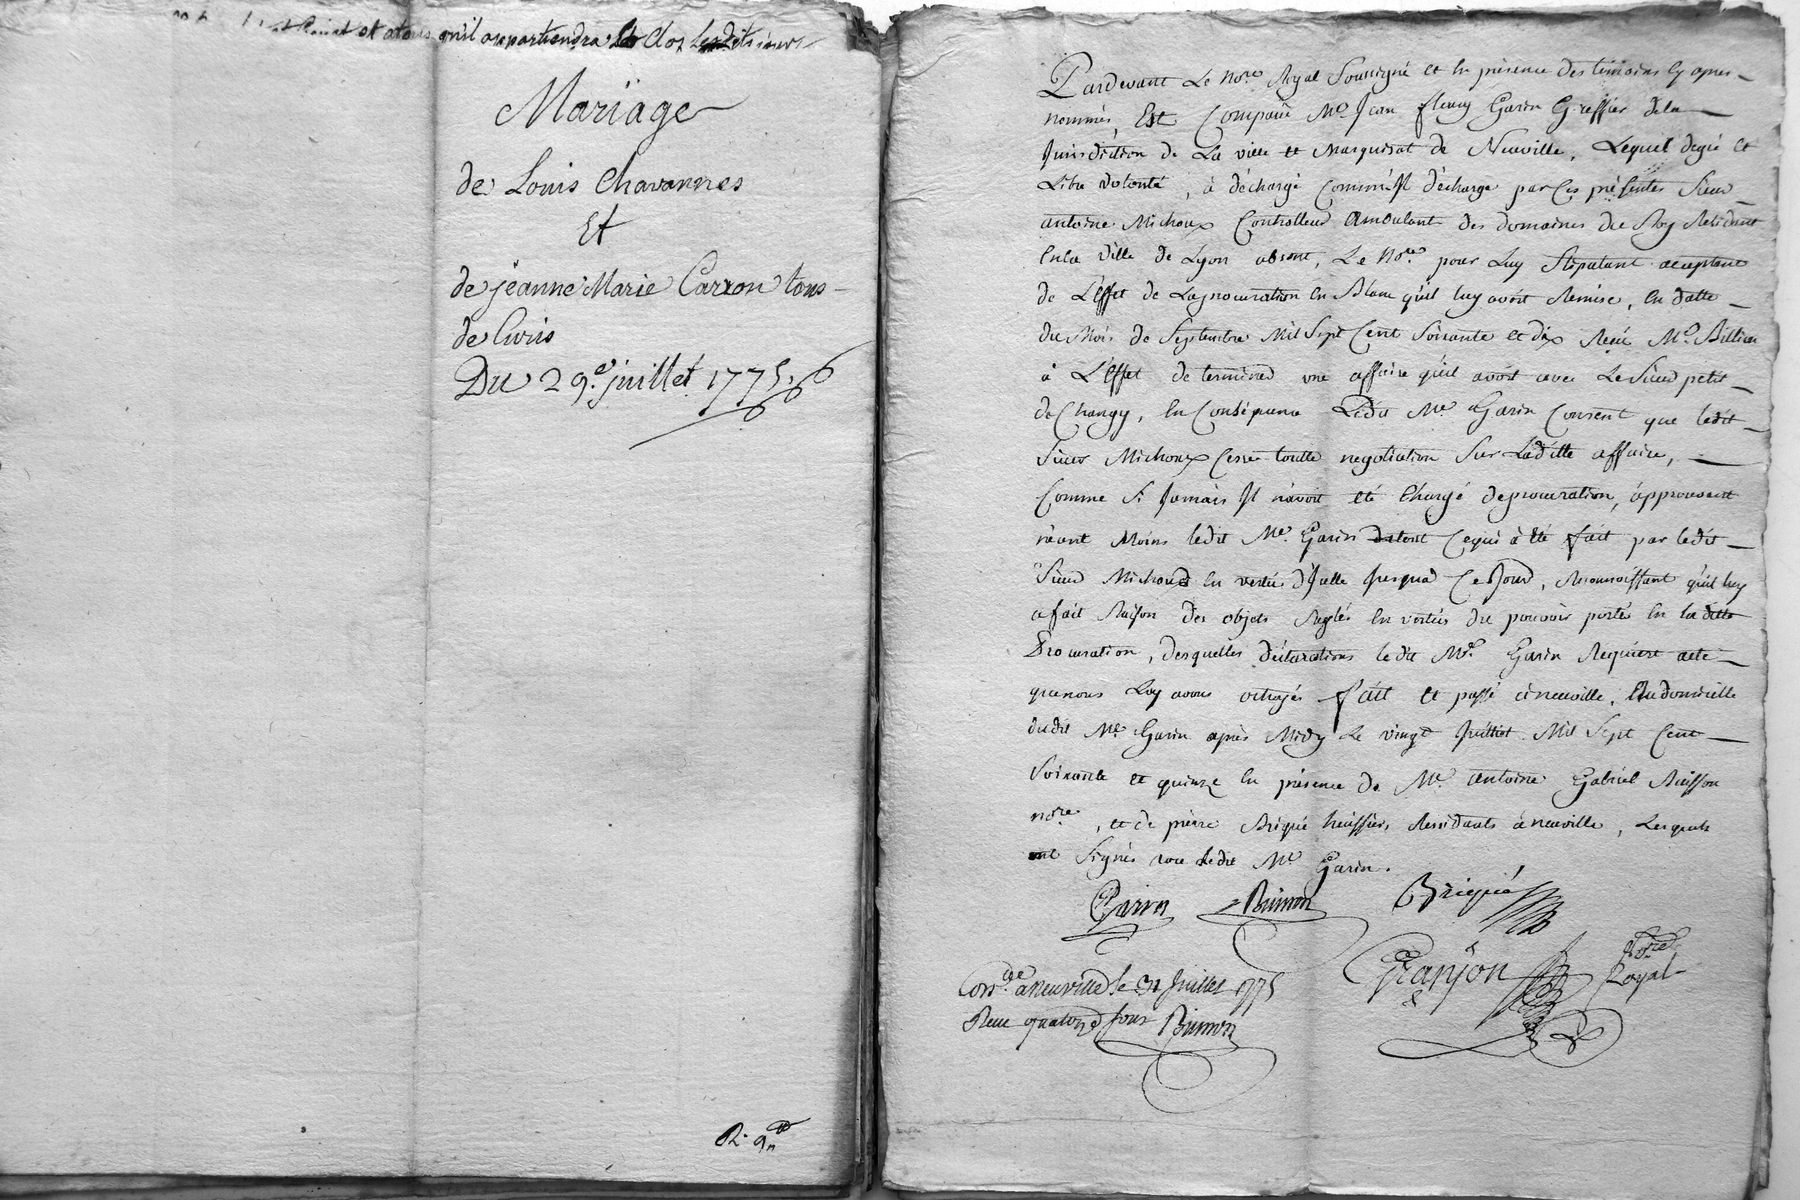 et atous qu'il appartiendra
Mariage
de Louis Chavannes
Et
de jeanne Marie Carron tous
de Curis
Du 29.e juillet 1775.
R. 9.
Pardevant Le No.re Royal Soussigné et En présence des témoins Cy apres
nommés Est Comparû M.e Jean fleury Garin Greffier dela
Jurisdiction de La ville et Marquisat de Neuville, Lequel degré et
Libre volonté, à déchargé Comme Il décharge par Ces présentes Sieur
antoine Michoux Controlleur Ambulant des domaines du Roy Résidant
Enla ville de Lyon absent, Le No.re pour Luy Stipulant acceptant
de L'éffet de Laprocuration En Blanc qu'il luy avoit Remise, En datte
du Mois de Septembre Mil Sept Cent Soixante et dix Reçu M.e Billion
à L'éffet de terminer une affaire qu'il avoit avec Le Sieur petit
de Changy, En Conséquence Ledit M.e Garin Consent que ledit
Sieur Michoux Cesse toutte negotiation Sur Laditte affaire,
Comme Si Jamais Il n'avoit été Chargé deprocuration, approuvant
néant Moins ledit M.e Garin Cequi à été fait par ledit
Sieur Michoux En vertu d'Icelle Jusqua Ce Jour, Reconnoissant qu'il luy
a fait Raison des objets Reglés En vertus du pouvoir porté En la ditte
Procuration, desquelles déclarations ledit M.e Garin Requiert acte
quenous Luy avons octroyés fait et passé àneuville, Audomicille
dudit M.e Garin après Midy Le vingt Juilliet Mil Sept Cent
Soixante et quinze En présence de M.e antoine Gabriel
no.re, et de pierre Briquié huissier, Residants àneuville, Lesquels
ont Signés avec Ledit M.e Garin.
Garin Briquié
Granjon No.re Royal
Con.lé aneuville le 31 Juillet 1775
Reçu quatorze sous